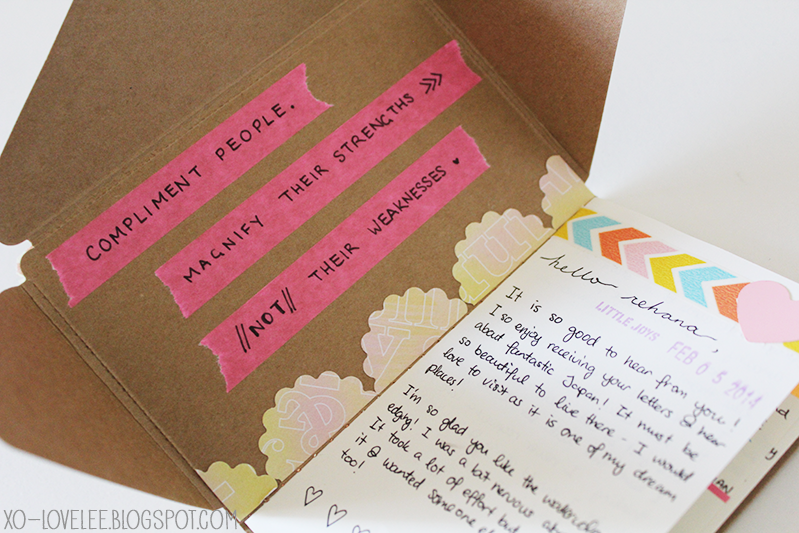 COMPLIMENT PEOPLE.
MAGNIFY THEIR STRENGTHS >>>
//NOT// THEIR WEAKNESSES ♥
hello rehana,
LITTLE JOYS FEB 05 2014
It is so good to hear from you!
I so enjoy receiving your letters & hear
about fantastic Japan! It must be
so beautiful to live there - I would
love to visit as it is one of my dream
places!
I'm so glad you like the
edging! I was a bit nervous
It took a lot of effort but
it & wanted someone
too!
XO-LOVELEE.BLOGSPOT.COM